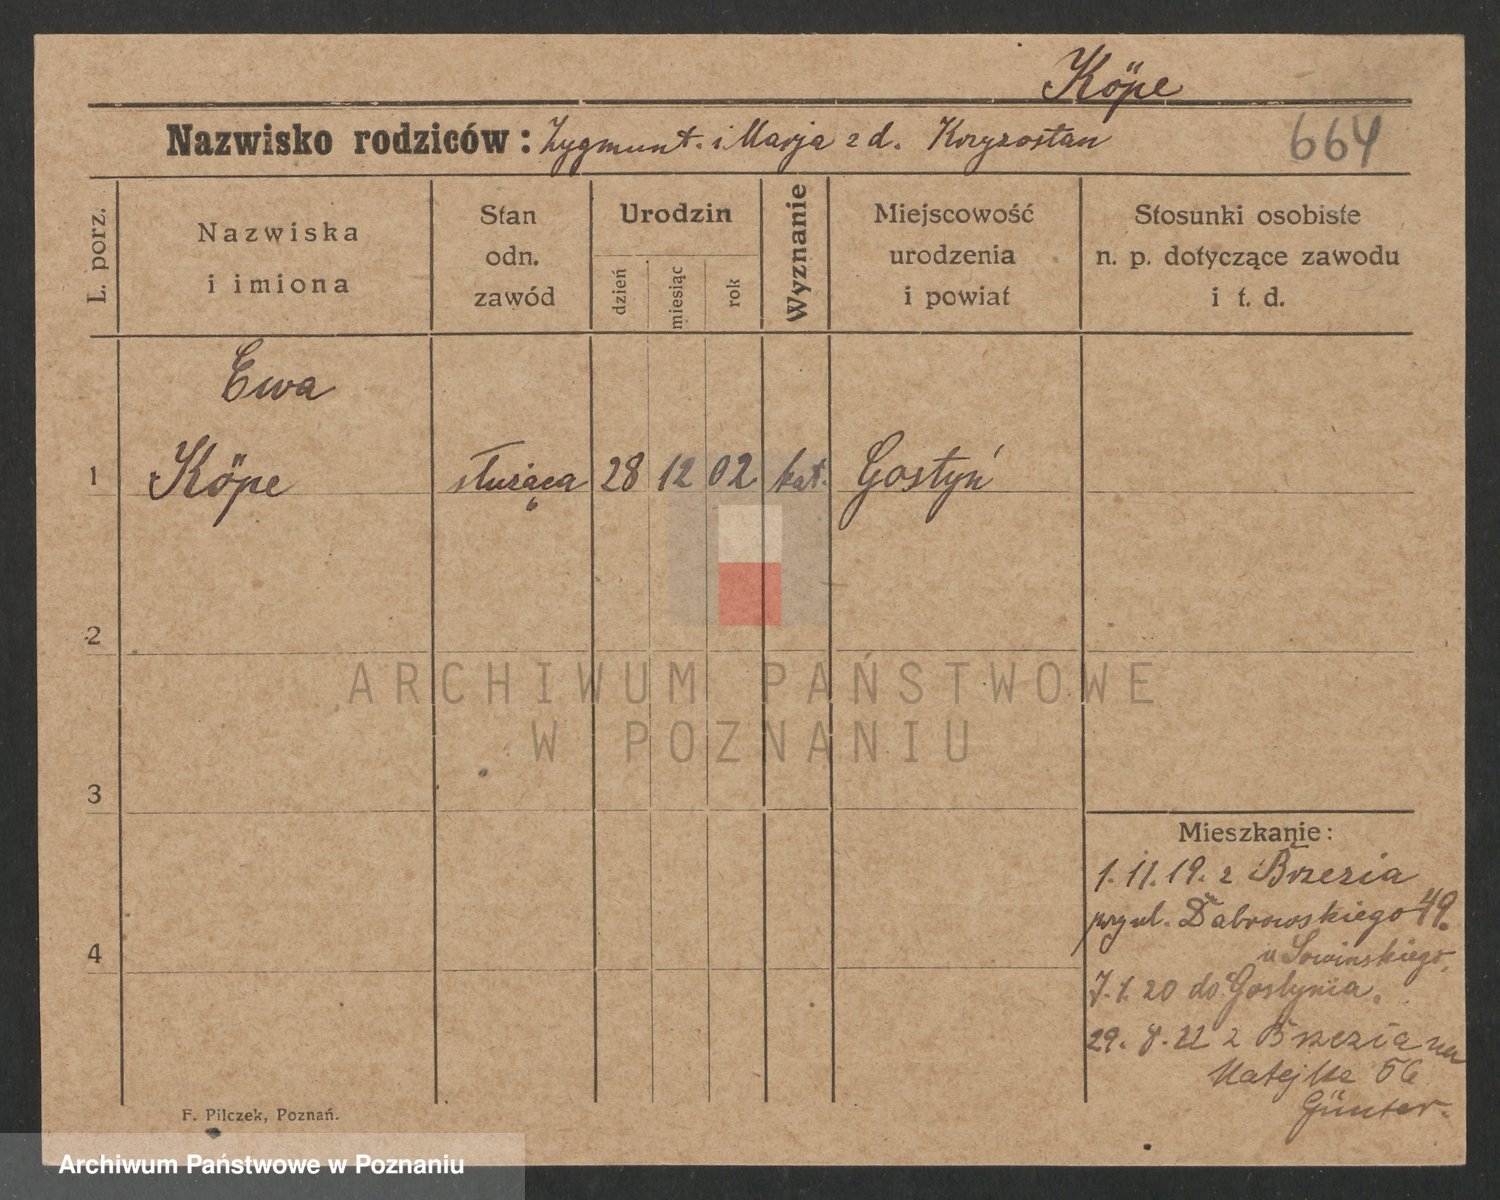 Köpe
Nazwisko rodziców: Zygmunt i Marja z d. Krzyzostan
664
L. porz.
Nazwiska
i imiona
Stan
odn.
zawód
Urodzin
dzień
miesiąc
rok
Wyznanie
Miejscowość
urodzenia
i powiat
Stosunki osobiste
n. p. dotyczące zawodu
i t. d.
Ewa
1 Köpe służąca 28 12 02 kat. Gostyń
2
3
4
Mieszkanie:
1.11.19. z Brzezia
przy ul. Dąbrowskiego 49.
u Sowinskiego.
7.1.20 do Gostynia.
29. 8. 22 z Brzezia na
Matejke 56
Günter.
F. Pilczek, Poznań.
ARCHIWUM PAŃSTWOWE
W POZNANIU
Archiwum Państwowe w Poznaniu